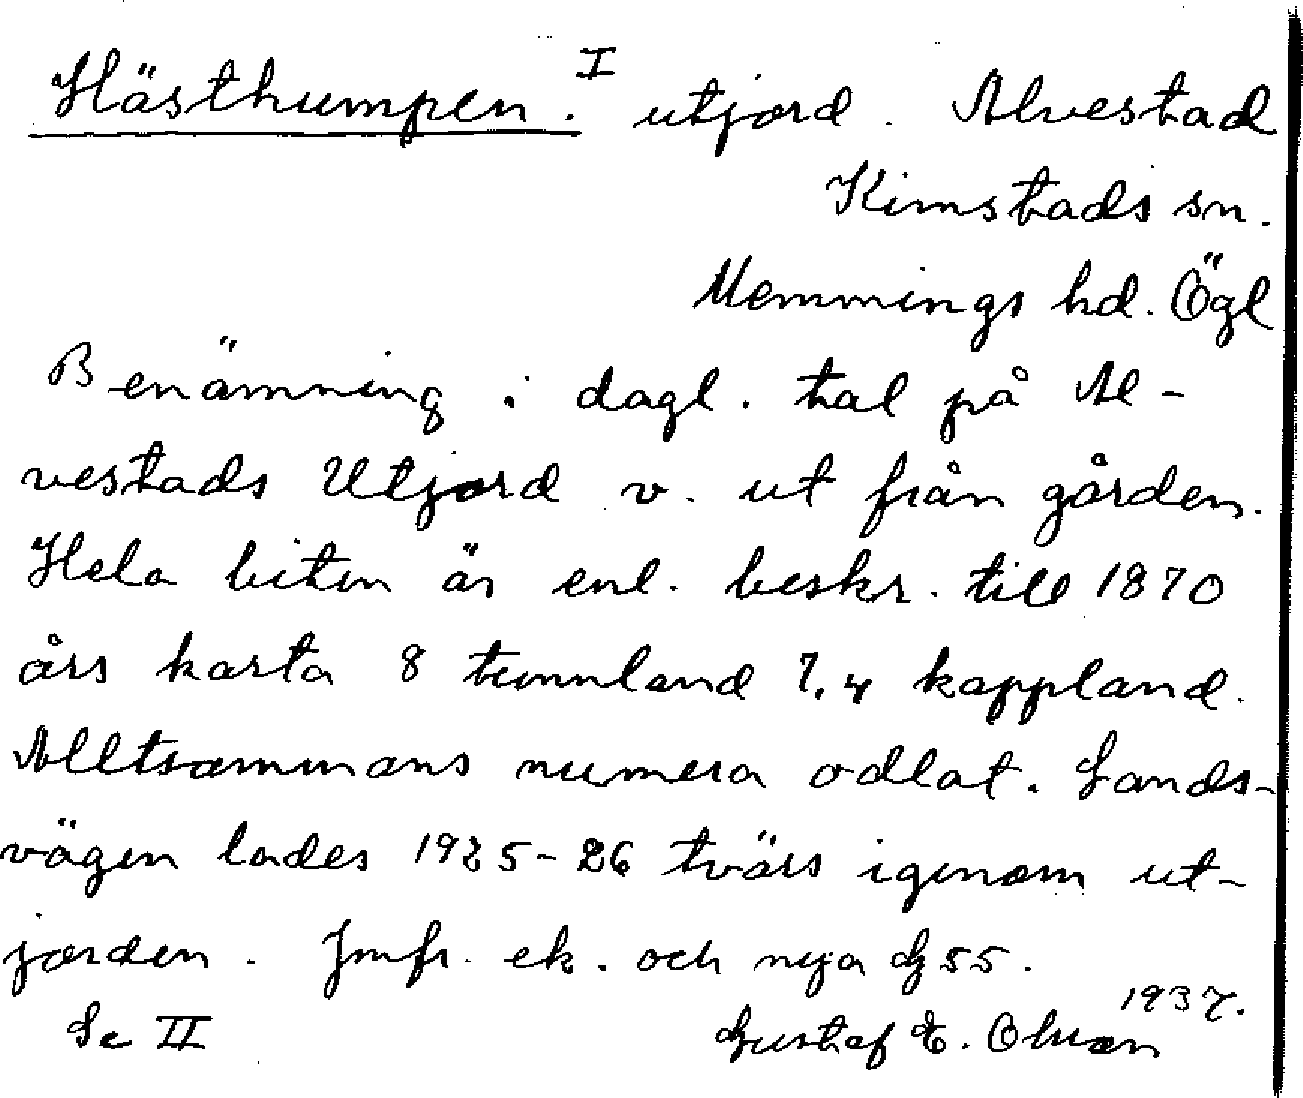 Hästhumpen. I utjord. Alvestad
Kimstads sn.
Memmings hd. Ögl
Benämning i dagl. tal på Al-
vestads Utjord v. ut från gården.
Hela biten är enl. beskr. till 1870
års karta 8 tunnland 7,4 kappland.
Alltsammans numera odlat. Lands-
vägen lades 1925-26 tvärs igenom ut-
jorden. Jmfr. ek. och nya 55.
Se II
1937.
Gustaf E. Olsson